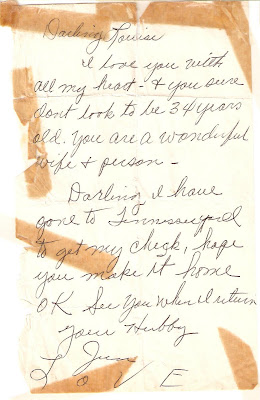 Darling Louise
I love you with
all my heart - & you sure
dont look to be 34 years
old. You are a wonderful
wife & person -
Darling, I have
gone to
to get my check, hope
you make it home
OK See You when I return
Your Hubby
Jim
LOVE